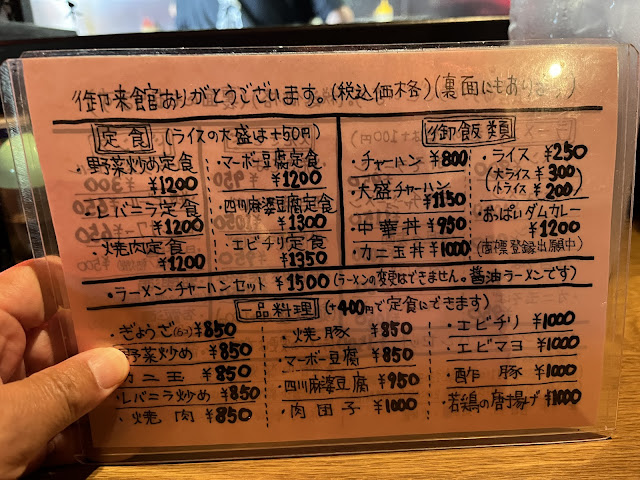 御来館ありがとうございます。(税込価格)(裏面にもあります)
定食 (ライスの大盛は+50円)
・野菜炒め定食 ¥1200
・レバニラ定食 ¥1200
・焼肉定食 ¥1200
・マーボ豆腐定食 ¥1200
・四川麻婆豆腐定食 ¥1300
・エビチリ定食 ¥1350
御飯類
・チャーハン ¥800
・大盛チャーハン ¥1150
・中華丼 ¥950
・カニ玉丼 ¥1000
・ライス ¥250
(大ライス ¥300
小ライス ¥200)
・おっぱいダムカレー ¥1200
(商標登録出願中)
・ラーメン・チャーハンセット ¥1500 (ラーメンの変更はできません。醤油ラーメンです)
一品料理 (+400円で定食にできます)
・ぎょうざ(6コ) ¥850
・野菜炒め ¥850
・カニ玉 ¥850
・レバニラ炒め ¥850
・焼肉 ¥850
・焼豚 ¥850
・マーボー豆腐 ¥850
・四川麻婆豆腐 ¥950
・肉団子 ¥1000
・エビチリ ¥1000
・エビマヨ ¥1000
・酢豚 ¥1000
・若鶏の唐揚げ ¥1000